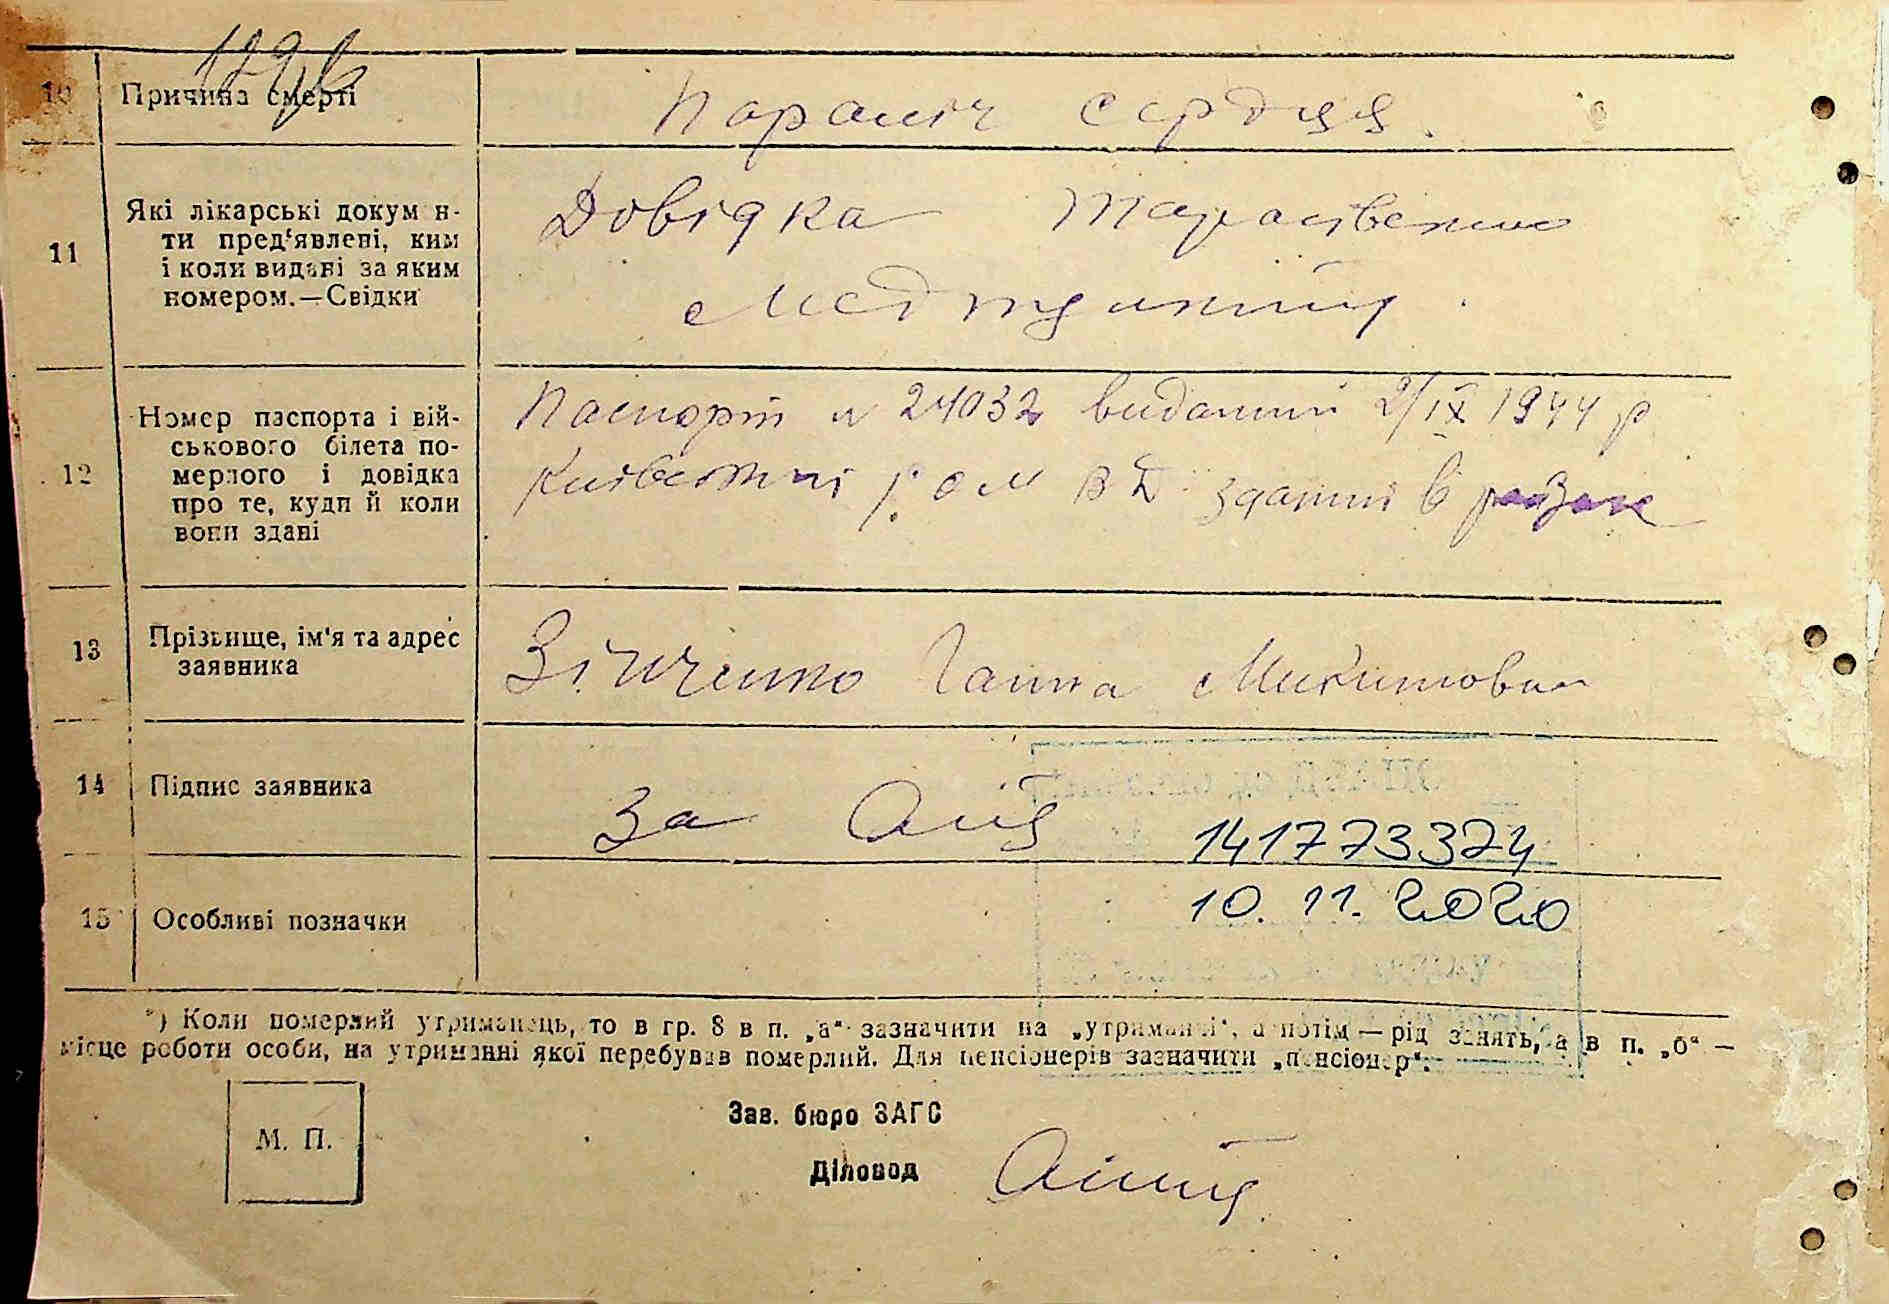 10 Причина смерті Параліч серця.
11 Які лікарські докум н-
ти пред‘явлені, ким
і коли видані за яким
номером.—Свідки
Довідка
Медпункту
12 Номер паспорта і вій-
ськового білета по-
мерлого і довідка
про те, куди й коли
вони здані
Паспорт № 24032 виданий 2/IX 1944 р
р. о М В Д. зданий в
13 Прізвище, ім'я та адрес
заявника
Зінченко Ганна Микитовна
14 Підпис заявника За
141773374
15 Особливі позначки 10. 11. 2020
*) Коли померлий утриманець, то в гр. 8 в п. „а“ зазначити на „утриманні“, а потім — рід занять, а в п. „б“ —
місце роботи особи, на утриманні якої перебував померлий. Для пенсіонерів зазначити „пенсіонер“.
М. П.
Зав. бюро ЗАГС
Діловод